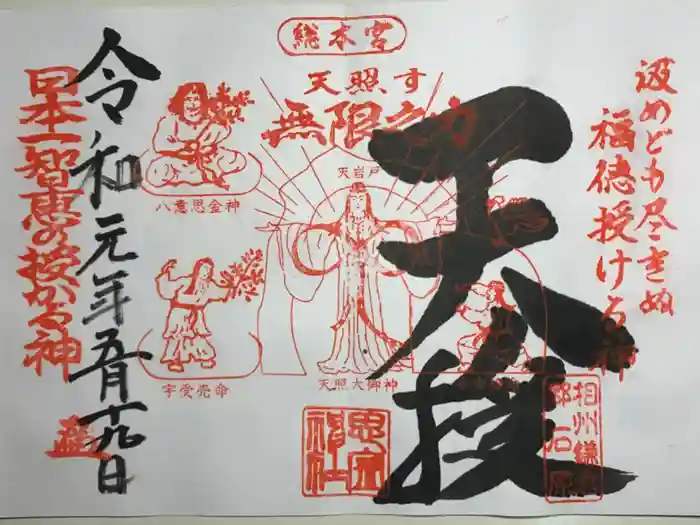 総本宮
汲めども尽きぬ
福徳授ける神
天照す
無限之力
天授
天岩戸
八意思金神
宇受売命
天照大御神
令和元年五月十九日
日本一智恵の授かる神
思金神社
相州鎌倉郡